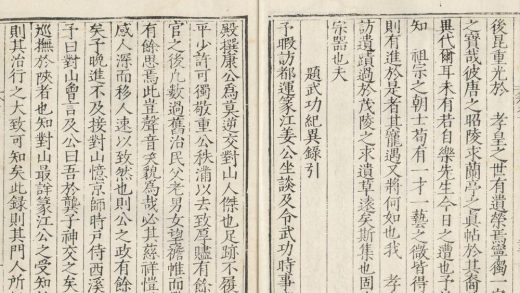 後昆重光於 孝皇之世有遺榮焉靈獨一
之寶哉彼唐之昭陵求蘭亭之真帖於其
異代爾耳未有若自樂先生今日之遭也予
知 祖宗之朝士苟有一才一藝之微皆得
則有進於是者其寵遇又將何如也我 孝
訪遺蹟過於茂陵之求遺草遠矣斯集也固
宗器也夫
題武功紀異錄引
予暇訪都運篆江姜公坐談及令武功時事
殿撰康公為莫逆交對山人傑也足跡不獲
平少許可獨敬重公秩滿以去致原贐有餘
官之後凢數過舊治民父老男女稽擔惟而
有餘思焉此豈聲音笑貌為哉必其蘇祥愷
感人深而移人速以致然也則公之政有餘
矣予晚進不及接對山憶京師時戸侍西溪
予曰對山嘗言及公曰吾於龔子神交之矣
巡撫於陜者也知對山最詳篆江公之受知
則其治行之大致可知矣此錄則其門人所